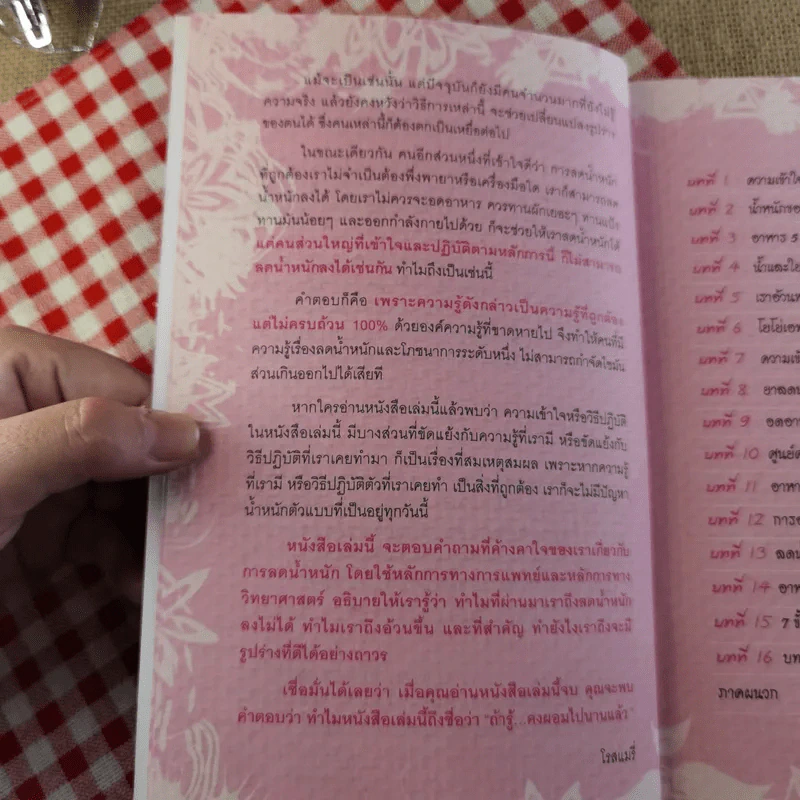 แม้จะเป็นเช่นนั้น แต่ปัจจุบันก็ยังมีคนจำนวนมากที่ยังไม่รู้
ความจริง แล้วยังคงหวังว่าวิธีการเหล่านี้ จะช่วยเปลี่ยนแปลงรูปร่าง
ของตนได้ ซึ่งคนเหล่านี้ก็ต้องตกเป็นเหยื่อต่อไป
ในขณะเดียวกัน คนอีกส่วนหนึ่งที่เข้าใจดีว่า การลดน้ำหนัก
ที่ถูกต้องเราไม่จำเป็นต้องพึ่งพายาหรือเครื่องมือใด เราก็สามารถลด
น้ำหนักลงได้ โดยเราไม่ควรจะอดอาหาร ควรทานผักเยอะๆ ทานแป้ง
ทานมันน้อยๆ และออกกำลังกายไปด้วย ก็จะช่วยให้เราลดน้ำหนักได้
แต่คนส่วนใหญ่ที่เข้าใจและปฏิบัติตามหลักการนี้ ก็ไม่สามารถ
ลดน้ำหนักลงได้เช่นกัน ทำไมถึงเป็นเช่นนี้
คำตอบก็คือ เพราะความรู้ดังกล่าวเป็นความรู้ที่ถูกต้อง
แต่ไม่ครบถ้วน 100% ด้วยองค์ความรู้ที่ขาดหายไป จึงทำให้คนที่มี
ความรู้เรื่องลดน้ำหนักและโภชนาการระดับหนึ่ง ไม่สามารถกำจัดไขมัน
ส่วนเกินออกไปได้เสียที
หากใครอ่านหนังสือเล่มนี้แล้วพบว่า ความเข้าใจหรือวิธีปฏิบัติ
ในหนังสือเล่มนี้ มีบางส่วนที่ขัดแย้งกับความรู้ที่เรามี หรือขัดแย้งกับ
วิธีปฏิบัติที่เราเคยทำมา ก็เป็นเรื่องที่สมเหตุสมผล เพราะหากความรู้
ที่เรามี หรือวิธีปฏิบัติตัวที่เราเคยทำ เป็นสิ่งที่ถูกต้อง เราก็จะไม่มีปัญหา
น้ำหนักตัวแบบที่เป็นอยู่ทุกวันนี้
หนังสือเล่มนี้ จะตอบคำถามที่ค้างคาใจของเราเกี่ยวกับ
การลดน้ำหนัก โดยใช้หลักการทางการแพทย์และหลักการทาง
วิทยาศาสตร์ อธิบายให้เรารู้ว่า ทำไมที่ผ่านมาเราถึงลดน้ำหนัก
ลงไม่ได้ ทำไมเราถึงอ้วนขึ้น และที่สำคัญ ทำยังไงเราถึงจะมี
รูปร่างที่ดีได้อย่างถาวร
เชื่อมั่นได้เลยว่า เมื่อคุณอ่านหนังสือเล่มนี้จบ คุณจะพบ
คำตอบว่า ทำไมหนังสือเล่มนี้ถึงชื่อว่า "ถ้ารู้...คงผอมไปนานแล้ว"
โรสแมรี่
บทที่ 1 ความเข้าใ
บทที่ 2 น้ำหนักขอ
บทที่ 3 อาหาร 5
บทที่ 4 น้ำและใย
บทที่ 5 เราอ้วนท
บทที่ 6 โยโย่เอฟ
บทที่ 7 ความเชื
บทที่ 8 ยาลดน
บทที่ 9 อดอา
บทที่ 10 ศูนย์ล
บทที่ 11 อาหา
บทที่ 12 การอ
บทที่ 13 ลดน
บทที่ 14 อาห
บทที่ 15 7 ขั้
บทที่ 16 บท
ภาคผนวก